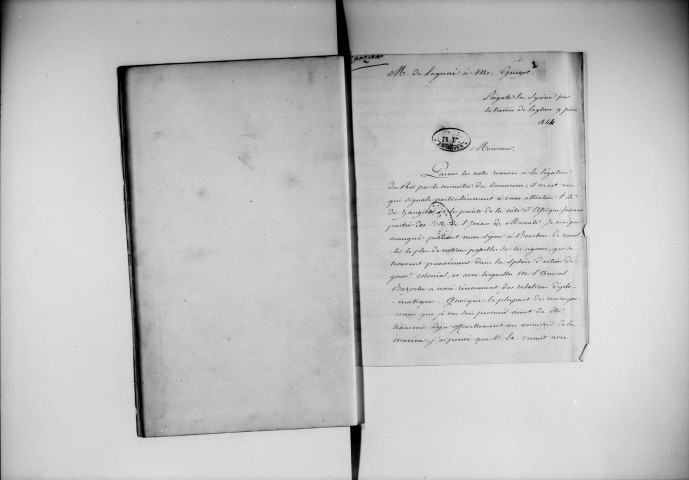 ZANZIBAR
1
M. de Lagrené à M. Guizot
Frégate la Syrène par
le travers de Ceylan 9 juin
1844
R.F.
Monsieur,
Parmi les notes remises à la Légation
du Roi par le ministre du Commerce, il en est une
qui signale particulièrement à mon attention l'île
de Zanzibar et les points de la côte d'Afrique faisant
partie des États de l'Iman de Mascate. Je n'ai pas
manqué pendant mon séjour à Bourbon de recueil-
lir le plus de notions possibles sur ces régions, qui se
trouvent précisément dans la sphère d'action du
gouvt colonial, et avec lesquelles M. l'Amiral
Bazoche a noué récemment des relations diplo-
matiques. Quoique la plupart des renseigne-
mens que je me suis procurés aient dû être
transmis déjà officiellement au ministre de la
marine, j'ai pensé que V. E. verrait avec